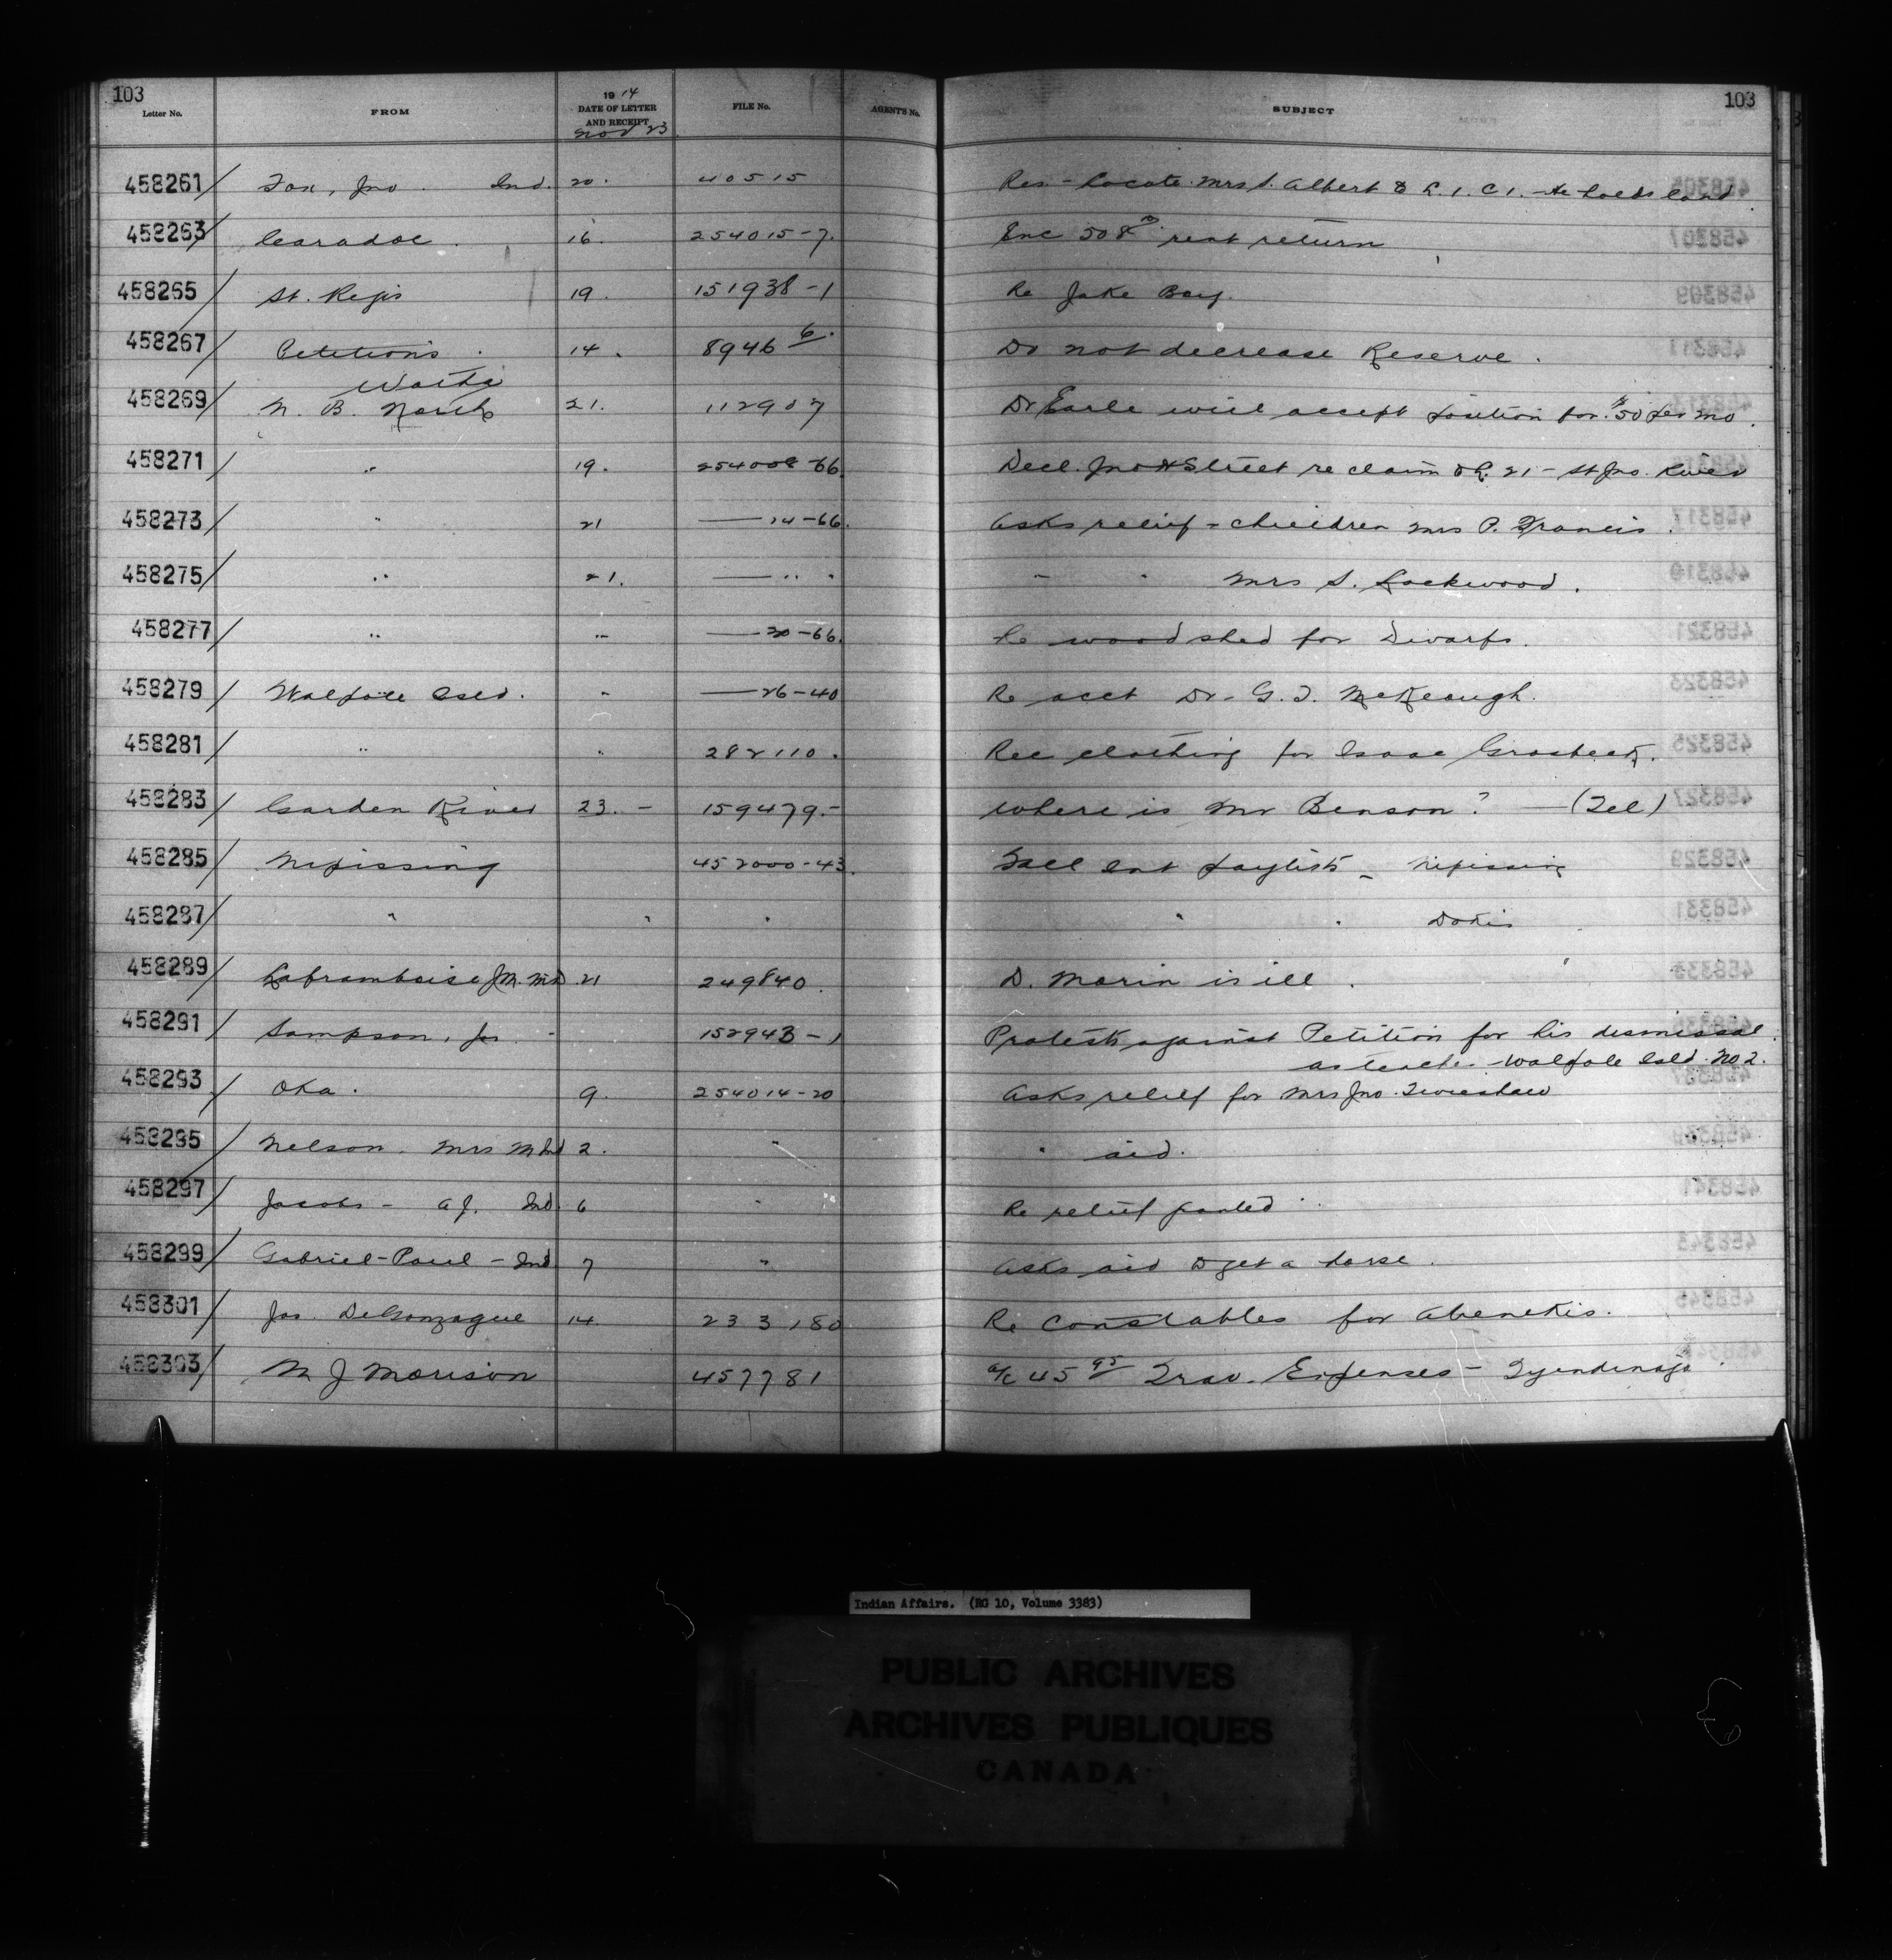 103
103
Letter No. FROM 1914 DATE OF LETTER AND RECEIPT Nov 23 FILE No. AGENT'S No. SUBJECT
458261 Fox, Jno. Ind. 20. 40515 Res - locate Mrs S. Albert & L. 1. C 1. - He holds land
458263 Caradoc. 16. 254015-7. Enc 508 rent return
458265 St. Regis 19. 151938-1 Re Jake Bay.
458267 Petitions. 14. 8946 6. Do not decrease Reserve.
458269 N. B. North 21. 112907 Dr Earle will accept position for $50 per mo.
458271 " 19. 254008-66. Decl. Jno H Street re claim L. 21 - St Jno. River
458273 " 21 — 14-66. Asks relief - children Mrs P. Francis.
458275 " 21. — " " " " Mrs S. Lockwood.
458277 " " — 20-66. Re woodshed for Dwarfs.
458279 Walpole Isld. " — 26-40 Re acct Dr. G. T. McKeough.
458281 " " 282110. Rec clothing for Isaac Grosbeck.
458283 Garden River 23. - 159479.- Where is Mr Benson? — (Tel)
458285 Nipissing 452000-43. Fall Int paylists - Nipissing
458287 " " " " " Dokis
458289 Laframboise J.M. M.D. 21 249840. D. Morin is ill.
458291 Sampson, Jos - 152943-1 Protests against Petition for his dismissal
as teacher - Walpole Isld. No 2.
458293 Oka. 9. 254014-20 Asks relief for Mrs Jno.
458295 Nelson. Mrs M Ind 2. " " aid.
458297 Jacobs - A J. Ind. 6 " Re relief granted.
458299 Gabriel - Paul - Ind 7 " Asks aid to get a horse.
458301 Jos. DeGonzague 14. 233,180 Re Constables for Abenakis.
458303 M J Morrison 457781 a/c 45 95 Trav. Expenses - Tyendinaga.
Indian Affairs. (RG 10, Volume 3383)
PUBLIC ARCHIVES
ARCHIVES PUBLIQUES
CANADA